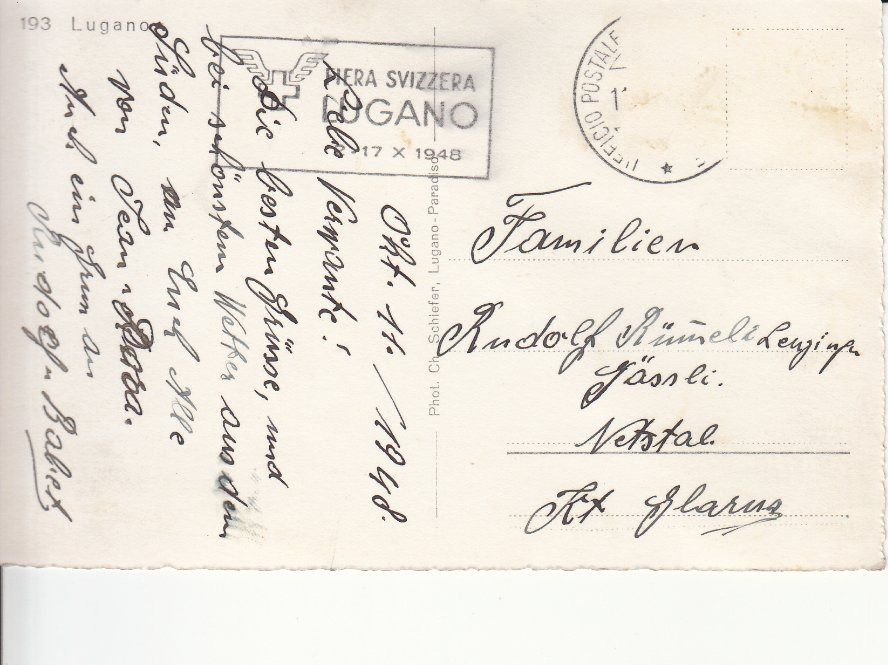 193 Lugano
FIERA SVIZZERA
LUGANO
-17 X 1948
UFFICIO POSTALE
Phot. Ch. Schiefer, Lugano-Paradiso
Okt. 11. / 1948.
Liebe Verwante!
Die besten Grüsse, und
bei schönstem Wetter aus dem
Süden, an Euch Alle
von Jean & Rosa.
Auch ein Gruss an
Rudolf u Babet
Familien
Rudolf Rümeli Lenzinger
Gässli.
Netstal.
Kt Glarus